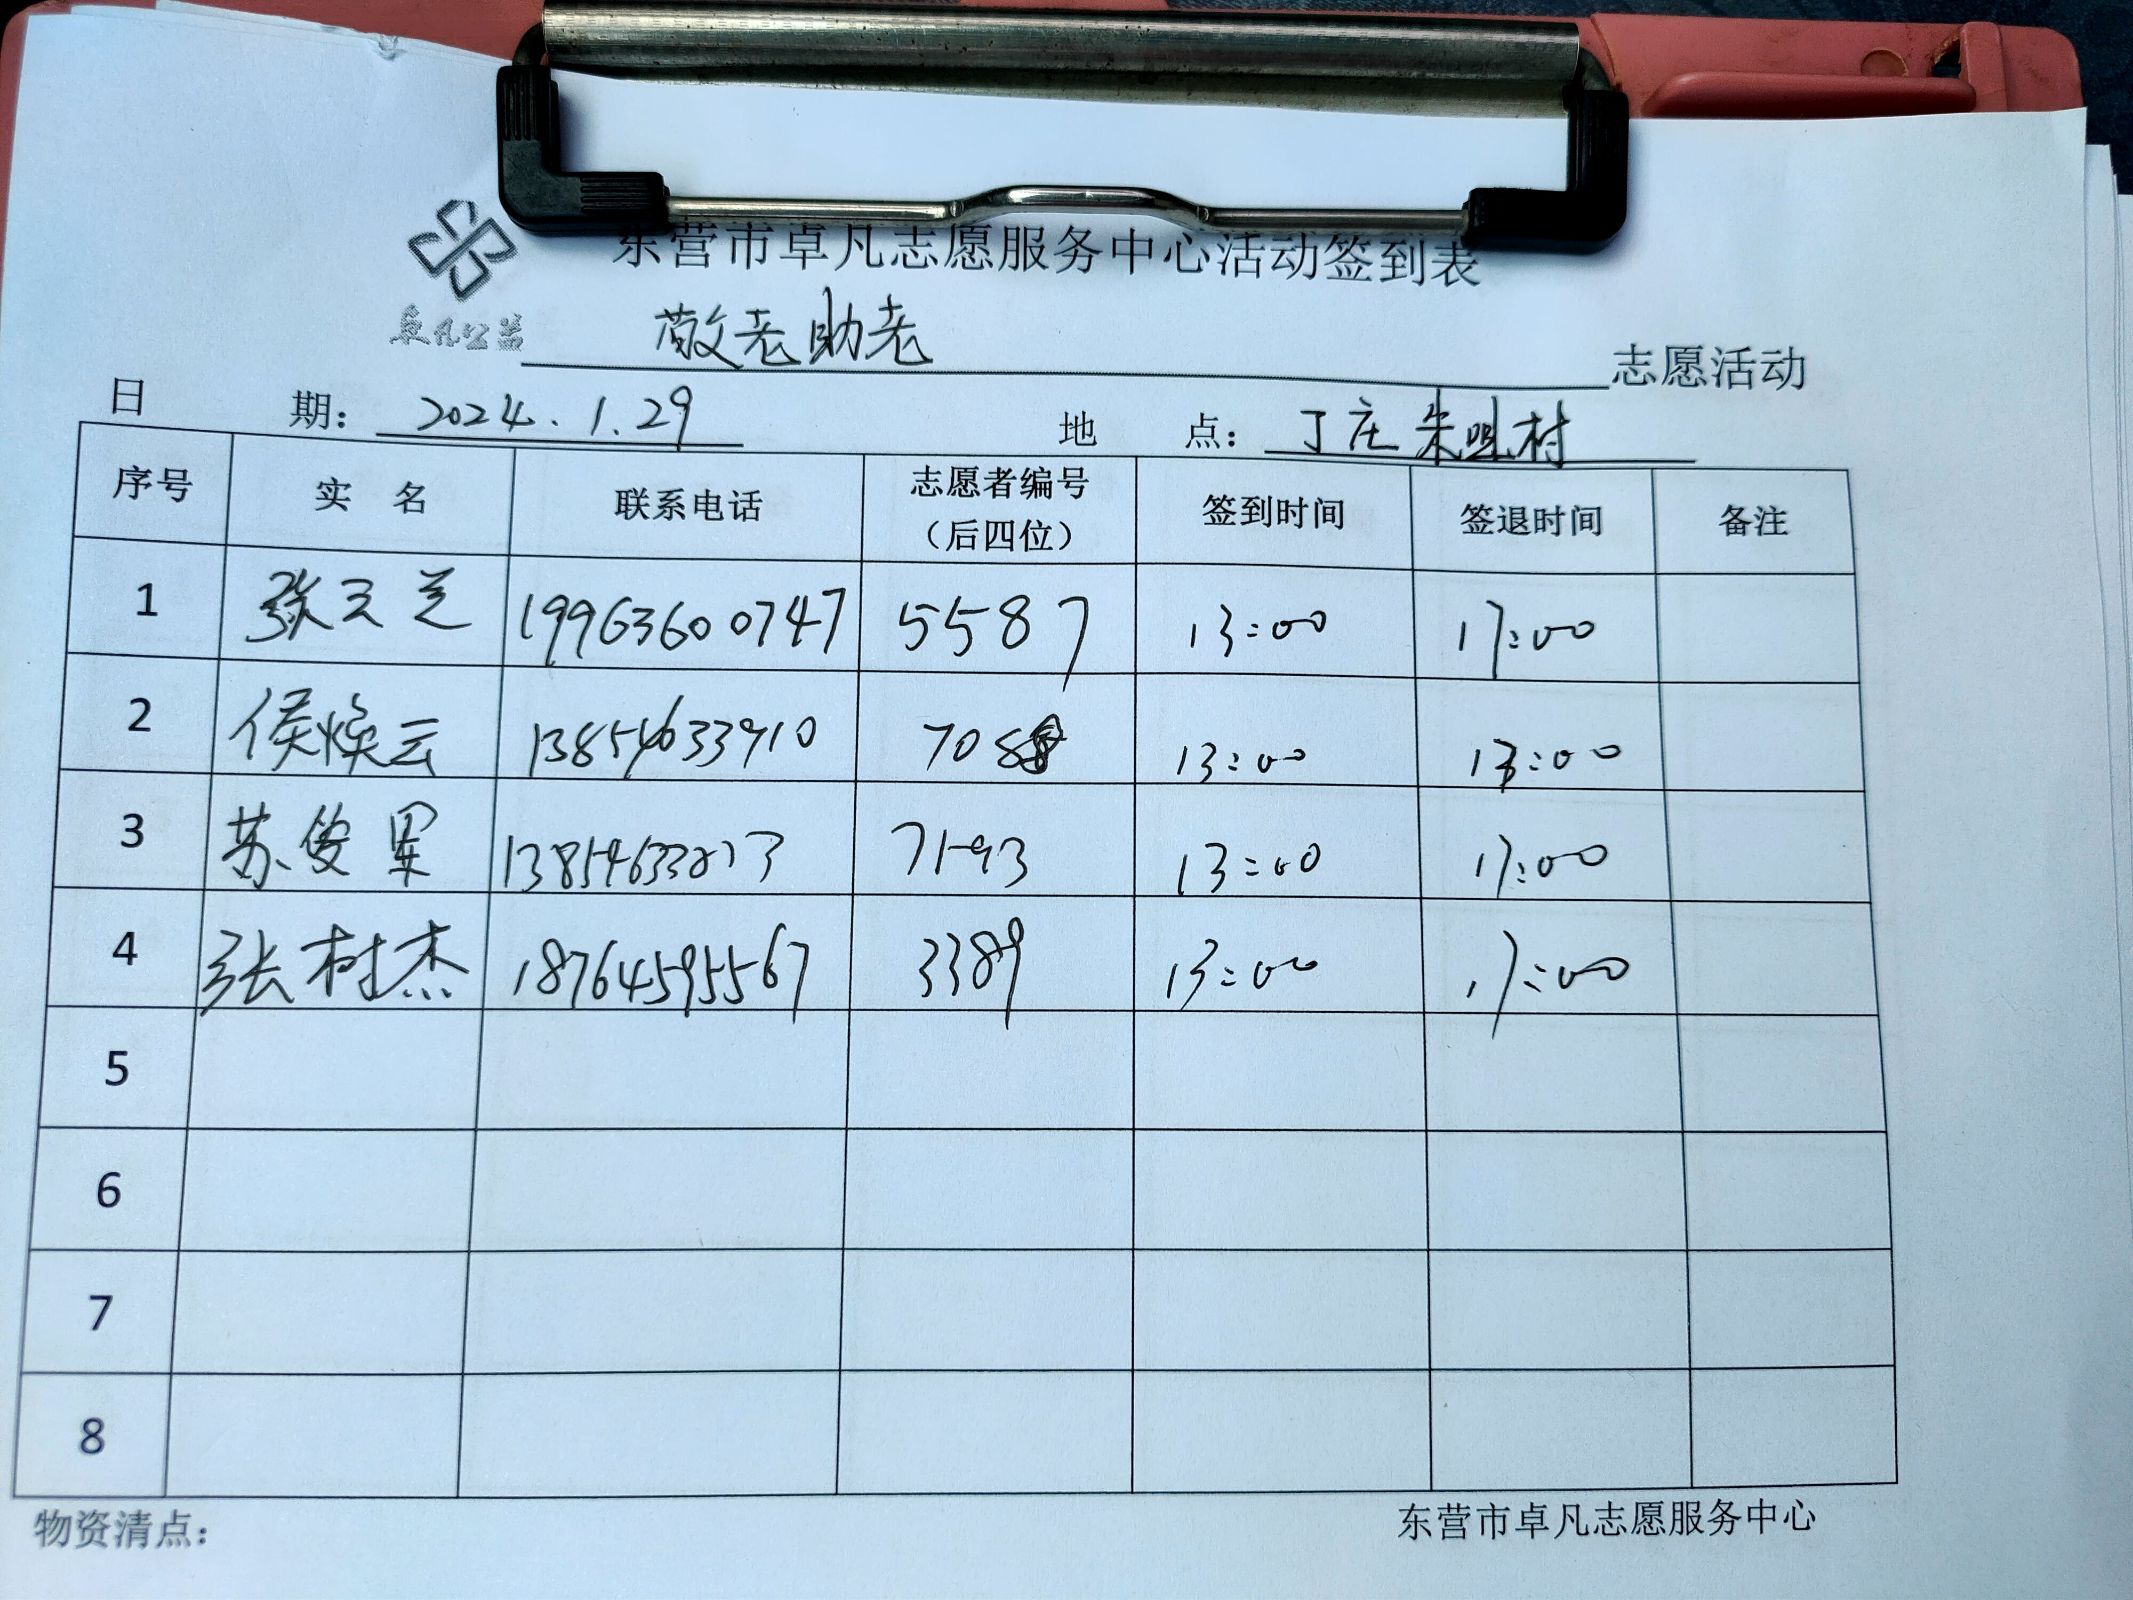 东营市卓凡志愿服务中心活动签到表
卓凡公益
敬老助老 志愿活动
日 期: 2024.1.29 地 点: 丁庄朱咀村
序号 实 名 联系电话 志愿者编号（后四位） 签到时间 签退时间 备注
1 张云芝 19963600747 5587 13:00 17:00
2 侯焕云 13854633910 7088 13:00 13:00
3 苏俊军 7193 13:00 17:00
4 张树杰 18764595567 3389 13:00 17:00
5
6
7
8
物资清点: 东营市卓凡志愿服务中心